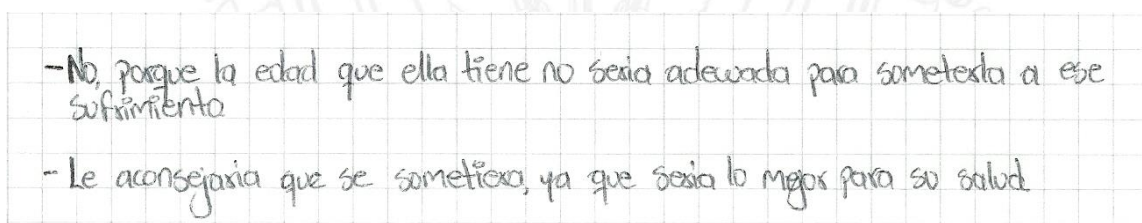 -No, porque la edad que ella tiene no seria adecuada para someterla a ese
sufrimiento
- Le aconsejaria que se sometiera, ya que seria lo mejor para su salud